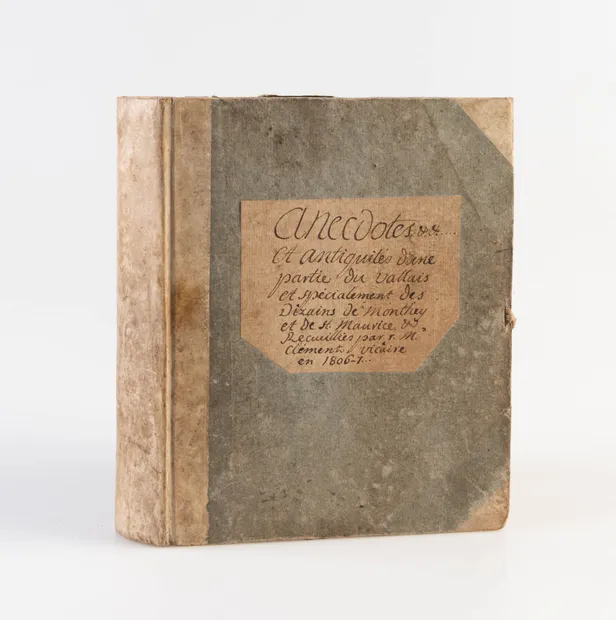 Anecdotes &c &c....
et antiquités d'une
partie du Vallais
et spécialement des
Dizains de Monthey
et de St. Maurice, &c.
Recueillies par r. M.
Clément, vicaire
en 1806-7...